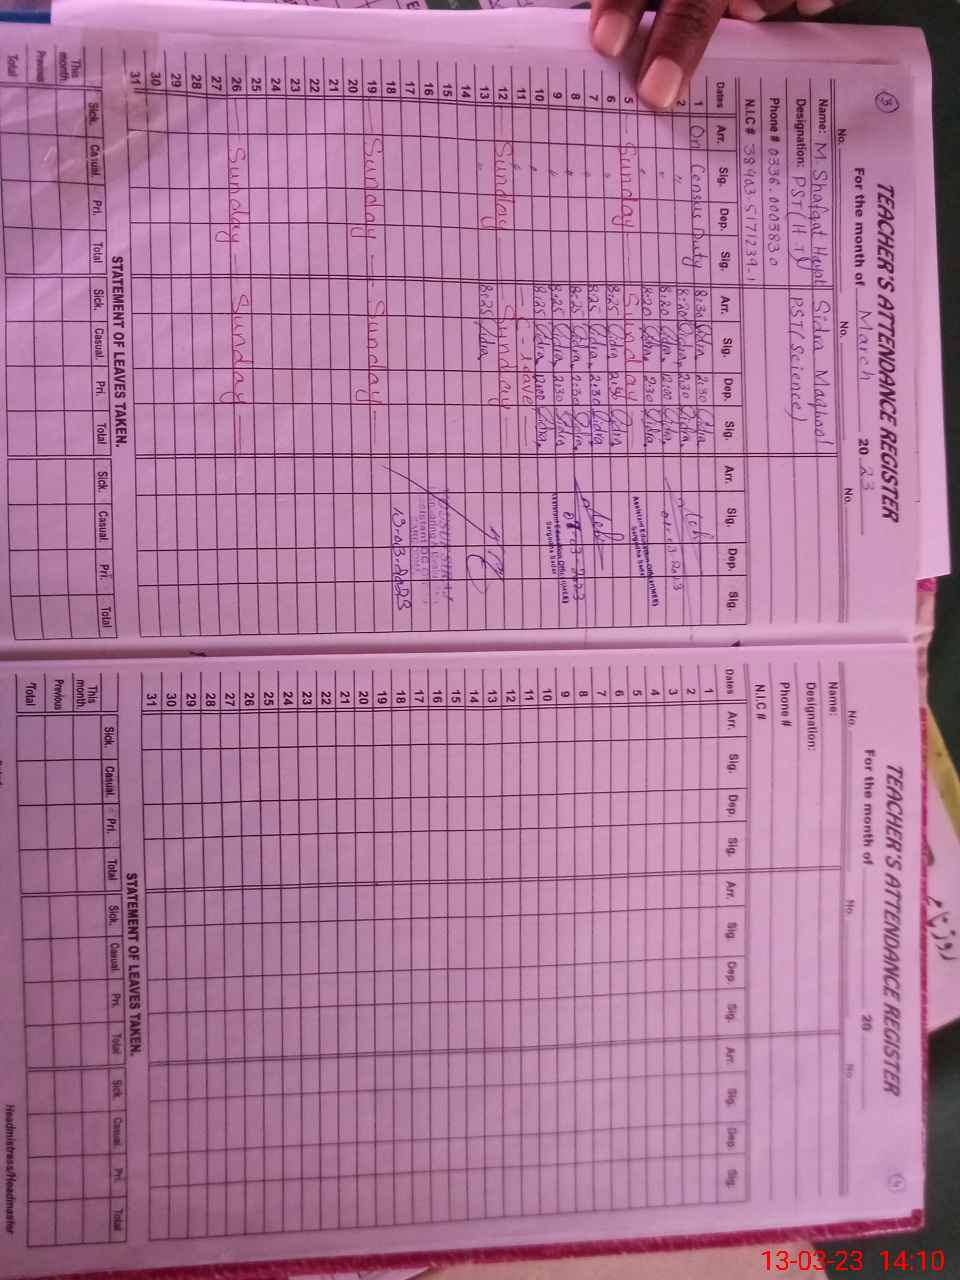 3
TEACHER'S ATTENDANCE REGISTER
For the month of March 2023
No. No. No.
Name: M. Shafqat Hayat Sidra Maqbool
Designation: PST (H.T) PST (Science)
Phone # 0336.0003830
N.I.C # 38403.5171239-1
Dates Arr. Sig. Dep. Sig. Arr. Sig. Dep. Sig. Arr. Sig. Dep. Sig.
1 On Census Duty 8:30 Sidra 2:30 Sidra
2 " 8:20 Sidra 2:30 Sidra
8:20 Sidra 12:00 Sidra
8:20 Sidra 2:30 Sidra
5 Sunday Sunday
6 " 8:25 Sidra 2:30 Sidra
7 " 8:25 Sidra 2:30 Sidra
8 " 8:25 Sidra 2:30 Sidra
9 " 8:25 Sidra 2:30 Sidra
10 " 8:25 Sidra 12:00 Sidra
11 " C-leave
12 Sunday Sunday
13 " 8:25 Sidra
14
15
16
17
18
19 Sunday Sunday
20
21
22
23
24
25
26 Sunday Sunday
27
28
29
30
31
01-03-2023
Assistant Education Officer (WEE)
Sargodha Sadar
07-03-2023
Assistant Education Officer (WEE)
Sargodha Sadar
13-03-2023
STATEMENT OF LEAVES TAKEN.
Sick. Casual. Pri. Total Sick. Casual. Pri. Total Sick. Casual. Pri. Total
This month.
Previous
Total
4
TEACHER'S ATTENDANCE REGISTER
For the month of 20
No. No. No.
Name:
Designation:
Phone #
N.I.C #
Dates Arr. Sig. Dep. Sig. Arr. Sig. Dep. Sig. Arr. Sig. Dep. Sig.
1
2
3
4
5
6
7
8
9
10
11
12
13
14
15
16
17
18
19
20
21
22
23
24
25
26
27
28
29
30
31
STATEMENT OF LEAVES TAKEN.
Sick. Casual. Pri. Total Sick. Casual. Pri. Total Sick. Casual. Pri. Total
This month.
Previous
Total
Headmistress/Headmaster
13-03-23 14:10